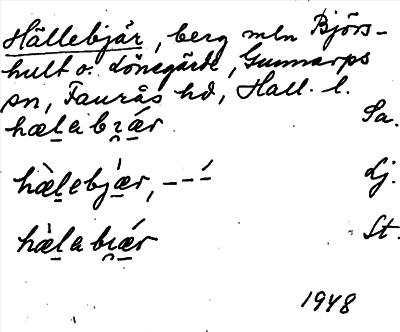 Hällebjär, berg mln Björs-
hult o. Lönegärde, Gunnarps
sn, Faurås hd, Hall. l.
hæl̠a bɪ̯ǽr Sa.
hæ̀l̠ebjǽr, – – –́ Lj.
hæ̀l̠a bɪ̯ǽr St.
1948